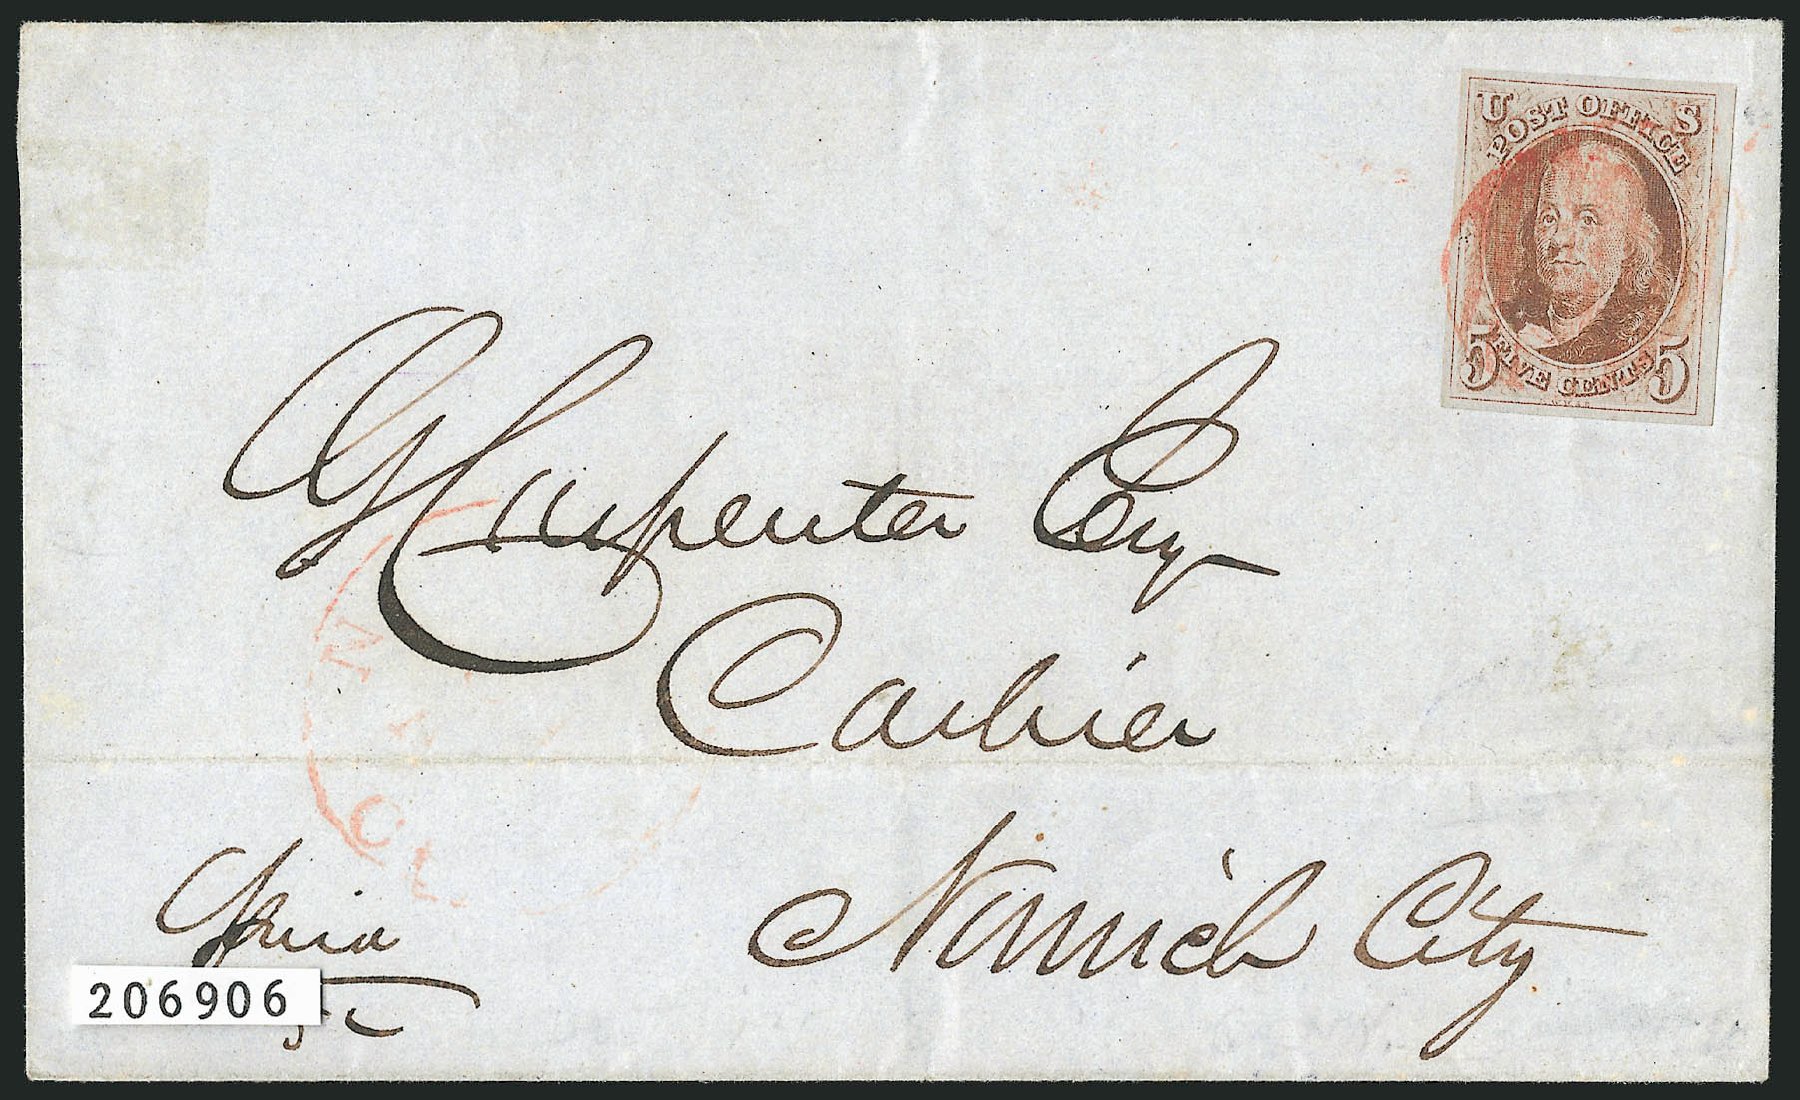 U S
POST OFFICE
5 FIVE CENTS 5
Carpenter Esq
Cashier
Norwich City
206906